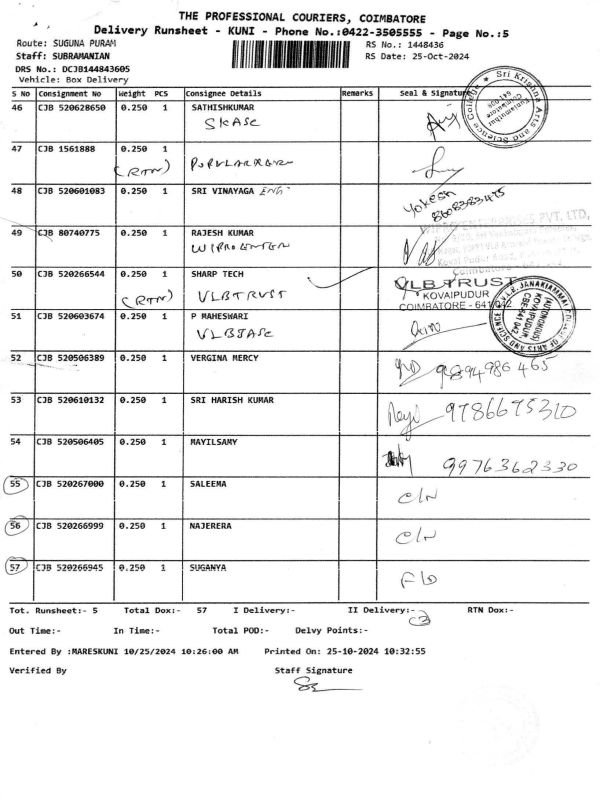 THE PROFESSIONAL COURIERS, COIMBATORE
Delivery Runsheet - KUNI - Phone No.:0422-3505555 - Page No.:5
Route: SUGUNA PURAM
RS No.: 1448436
Staff: SUBRAMANIAN
RS Date: 25-Oct-2024
DRS No.: DCJB144843605
Vehicle: Box Delivery
S No Consignment No Weight PCS Consignee Details Remarks Seal & Signature
46 CJB 520628650 0.250 1 SATHISHKUMAR
SKASC
Sri Krishna Arts and Science College
Coimbatore
641 008
47 CJB 1561888 0.250 1
(RTN)
48 CJB 520601083 0.250 1 SRI VINAYAGA ENG
Yokesh
8608383475
49 CJB 80740775 0.250 1 RAJESH KUMAR
WIPRO ENTER
WIPRO ENTERPRISES PVT. LTD,
50 CJB 520266544 0.250 1 SHARP TECH
(RTN) VLBTRUST
VLB TRUST
KOVAIPUDUR
COIMBATORE - 641 042
51 CJB 520603674 0.250 1 P MAHESWARI
VLBJASC
(AUTONOMOUS)
KOVAIPUDUR
CBE-641 042
52 CJB 520506389 0.250 1 VERGINA MERCY
9894986465
53 CJB 520610132 0.250 1 SRI HARISH KUMAR
9786675310
54 CJB 520506405 0.250 1 MAYILSAMY
9976362330
55 CJB 520267000 0.250 1 SALEEMA
C/N
56 CJB 520266999 0.250 1 NAJERERA
C/N
57 CJB 520266945 0.250 1 SUGANYA
F/D
Tot. Runsheet:- 5 Total Dox:- 57 I Delivery:- II Delivery:- RTN Dox:-
C3
Out Time:- In Time:- Total POD:- Delvy Points:-
Entered By :MARESKUNI 10/25/2024 10:26:00 AM Printed On: 25-10-2024 10:32:55
Verified By Staff Signature